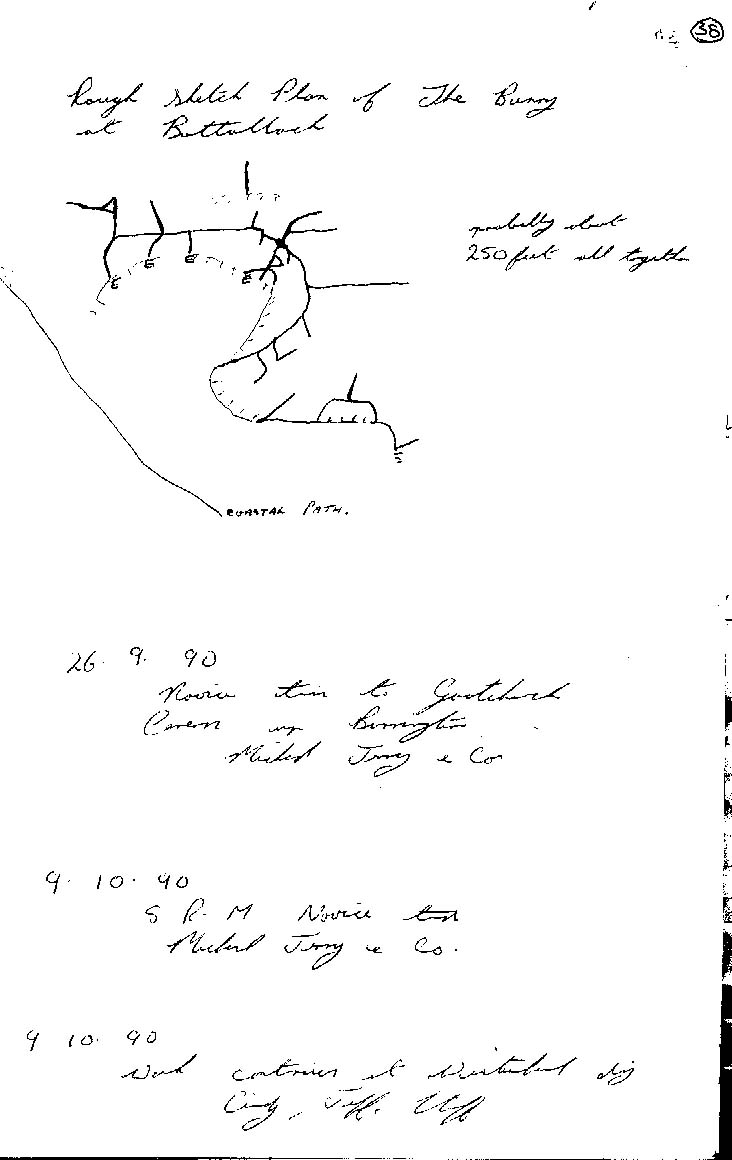 38
Rough Sketch Plan of The Bunny
at Bottallack
probably about
250 feet all together
COASTAL PATH.
26. 9. 90
Novice trip to Goatchurch
Cavern up Burrington
Michael Jerry & Co
9. 10. 90
S R. M Novice
Michael Jerry & Co.
9 10. 90
Work continues at dig
Cindy, Jeff.